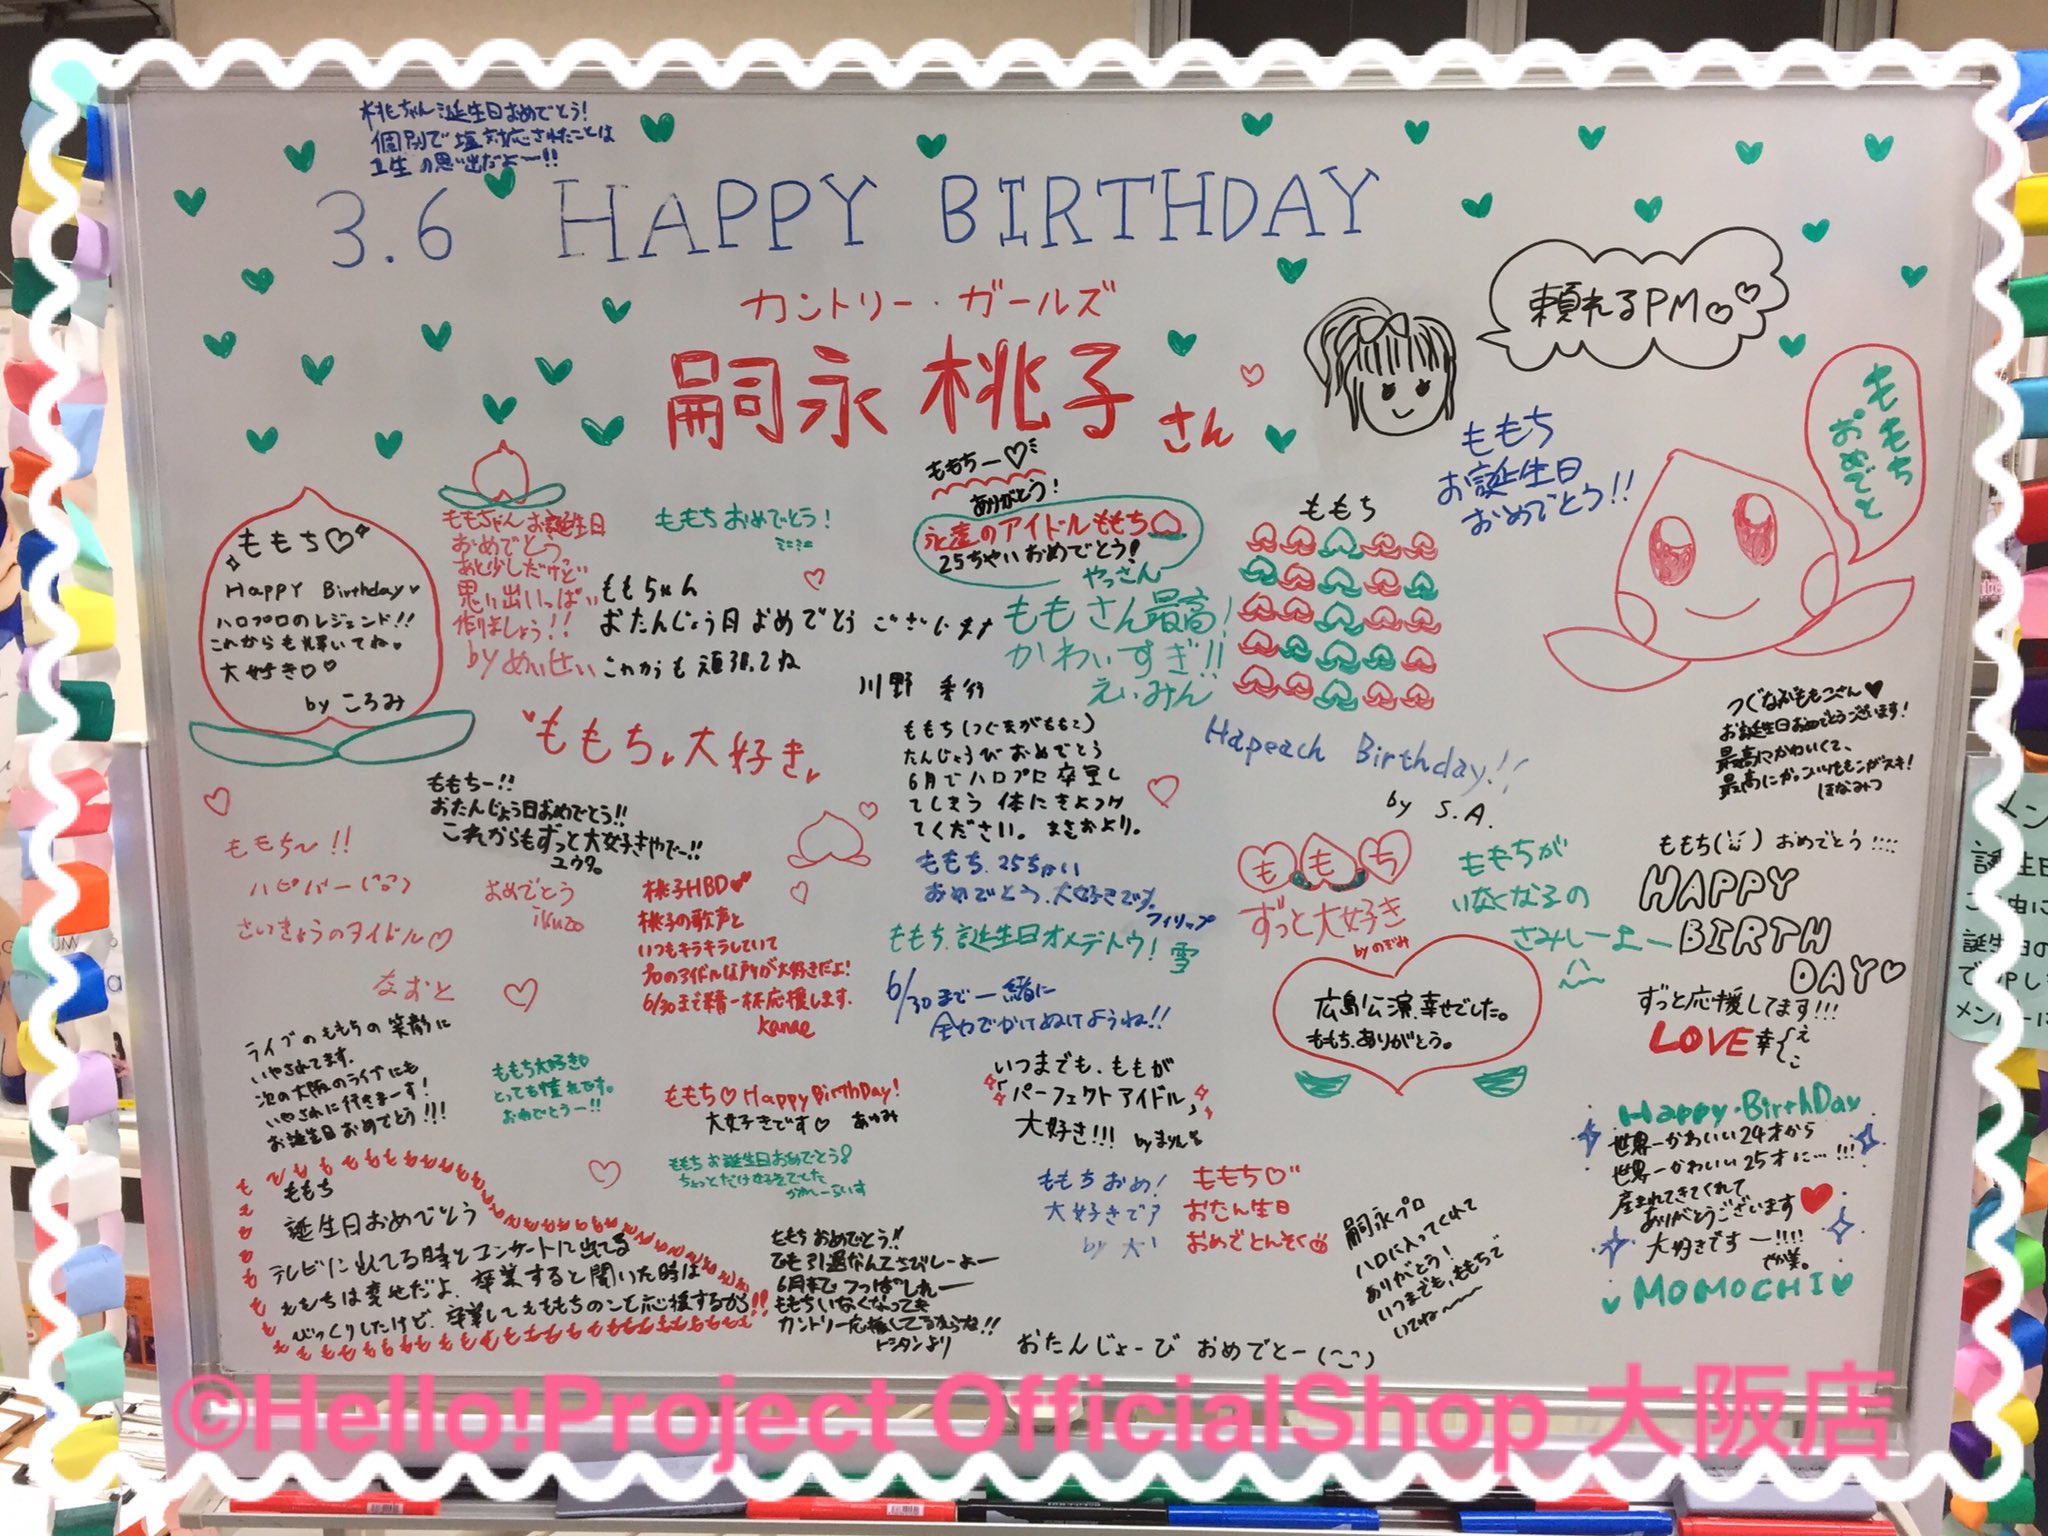 桃ちゃん誕生日おめでとう!
個別で塩対応されたことは
1生の思い出だよー!!
3.6 HAPPY BIRTHDAY
カントリー・ガールズ
嗣永 桃子さん
頼れるPM
ももち
おめでと
ももち
お誕生日
おめでとう!!
ももちー♡
ありがとう!
永遠のアイドルももち
25ちゃいおめでとう!
やっさん
ももち♡
Happy Birthday
ハロプロのレジェンド!!
これからも輝いてね。
大好き♡♡
by ころみ
ももちゃんお誕生日
おめでとう
あと少しだけど
思い出いっぱい
作りましょう!!
by めいせい
ももちおめでとう!
ももちゃん
おたんじょう日おめでとうございます
これからも頑張ってね
川野
ももさん最高!
かわいすぎ!!
えいみん
ももち
つぐながももこさん♥
お誕生日おめでとうございます!
最高にかわいくて、
最高にガッツリももンがスキ!
ほなみつ
ももち♥大好き♥
ももち(つぐながももこ)
たんじょうびおめでとう
6月でハロプロ卒業し
てしまう 体にきよつけ
てください。 まさおより。
Hapeach Birthday!!
by S.A.
ももちー!!
おたんじょう日おめでとう!!
これからもずっと大好きやでー!!
ユウタ。
ももち〜!!
ハピバー
さいきょうのアイドル♡
なおと
おめでとう
ikuzo
桃子HBD♥
桃子の歌声と
いつもキラキラしていて
プロのアイドルな所が大好きだよ!
6/30まで精一杯応援します.
kanae
ももち、25ちゃい
おめでとう、大好きです。
フィリップ
ももち、誕生日オメデトウ! 雪
6/30まで一緒に
全力でかけぬけようね!!
ももち
ずっと大好き
by のぞみ
ももちが
いなくなるの
さみしーよー
ももち おめでとう
HAPPY
BIRTH
DAY♡
ずっと応援してます!!!
LOVE幸
広島公演、幸せでした。
ももち、ありがとう。
ライブのももちの笑顔に
いやされてます.
次の大阪のライブにも
いやされに行きまーす!
お誕生日おめでとう!!!
ももち大好き♡
とっても憧れです。
おめでとうー!!
ももち♡Happy BirthDay!
大好きです♡ あゆみ
いつまでも、ももが
「パーフェクトアイドル」
大好き!!! by まりん
ももちお誕生日おめでとう
ちょっとだけ好きでした
かれーらいす
Happy・BirthDay
世界一かわいい24才から
世界一かわいい25才に…!!!
産まれてきてくれて
ありがとうございます♥
大好きですー!!!!
MOMOCHI♥
ももち
誕生日おめでとう
テレビに出てる時とコンサートに出てる
ももちは変せだよ. 卒業すると聞いた時は
びっくりしたけど. 卒業してもももちのこと応援するから!!
ももちおめでとう!!
でも引退なんてさびしーよー
6月まで つっぱしれー
ももちいなくなっても
カントリー応援してるからな!!
トシタンより
ももちおめ!
大好きです
ももち♡
おたん生日
おめでとんそく
嗣永プロ
ハロに入ってくれて
ありがとう!
いつまでも、ももちで
いてね〜
おたんじょーび おめでとー
©Hello!Project OfficialShop 大阪店